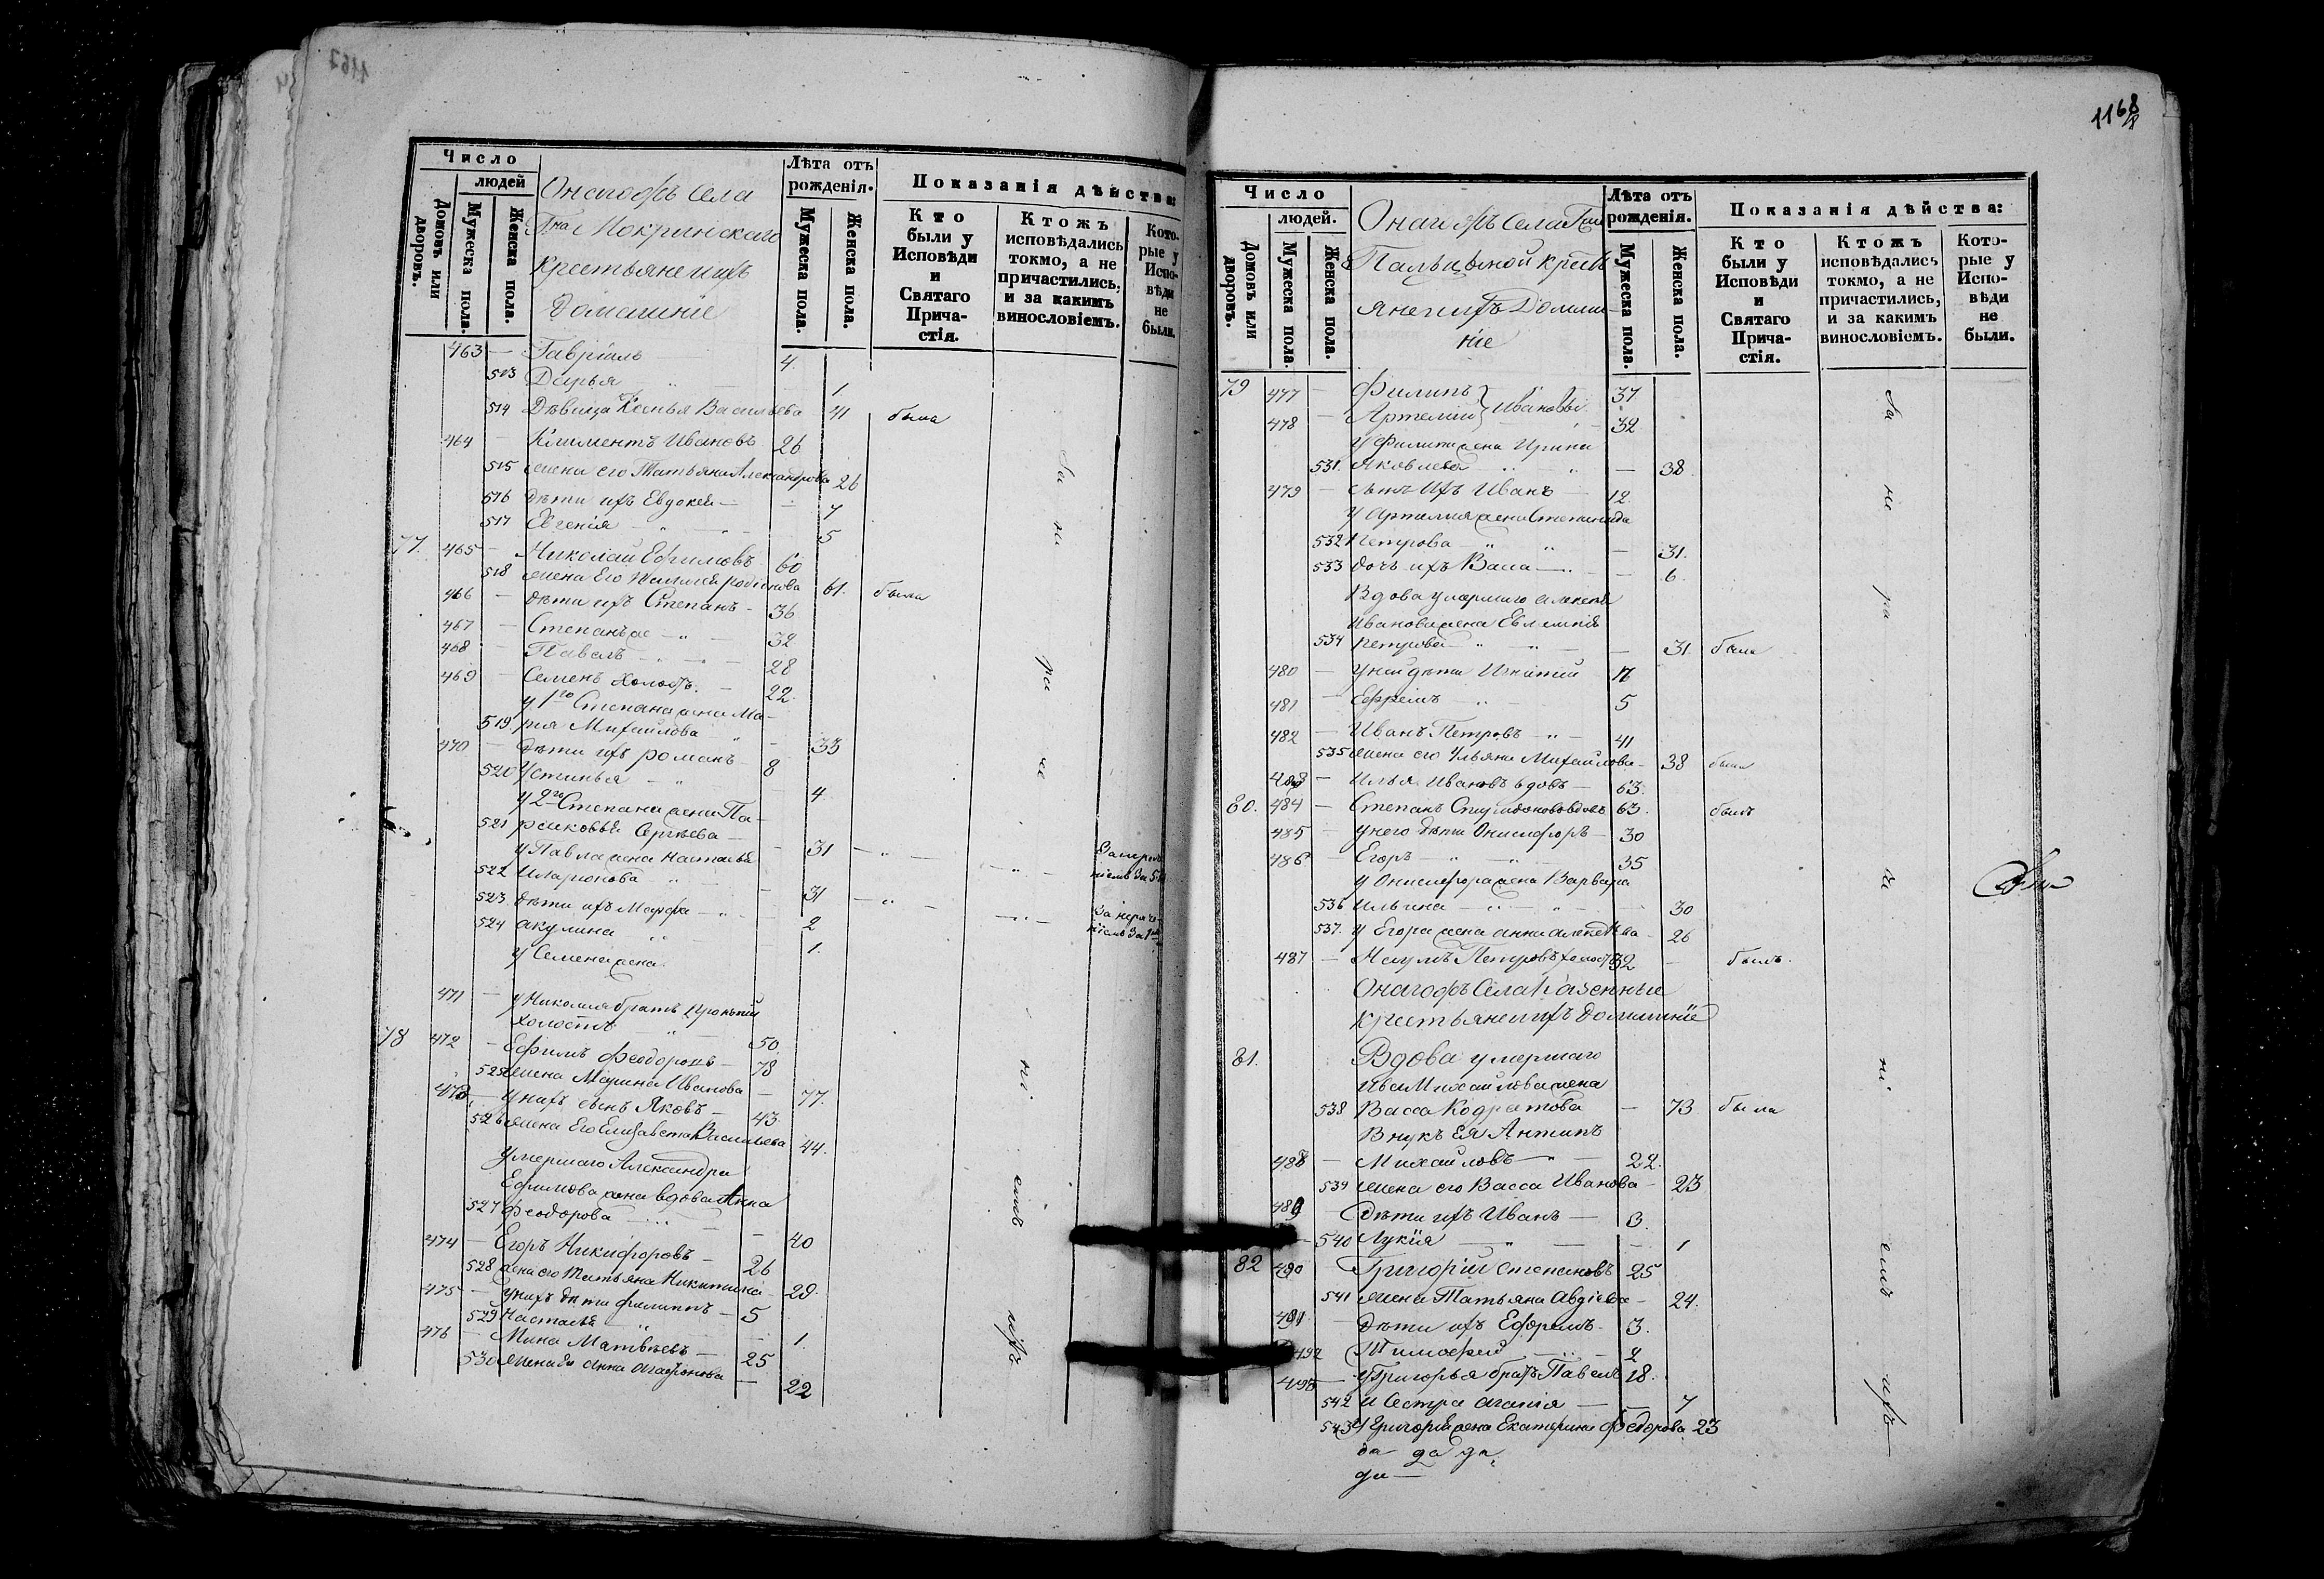 1168
Число
людей
Домовъ или дворовъ.
Мужеска пола.
Женска пола.
Онагожъ села
Г-на Мокринскаго
крестьяне ихъ
домашніе
Лѣта отъ рожденія.
Мужеска пола.
Женска пола.
Показанія дѣйства:
Кто были у Исповѣди и Святаго Причастія.
Ктожъ исповѣдались токмо, а не причастились, и за какимъ винословіемъ.
Которые у Исповѣди не были.
463 — Гавріилъ 4.
513 Дарья „ — 1.
514 Дѣвица Ксенья Васильева 41 была
464 — Климентъ Ивановъ 26
515 жена его Татьяна Александрова 26
516 дѣти ихъ Евдокея — 7
517 Евгенія — „ — 5
77. 465 — Николай Ефимовъ 60
518 жена Его родіонова 61. была
466 — дѣти ихъ Степанъ — 36
467 — Степанъ же — „ — 32
468 — Павелъ — „ — 28
469 — Семенъ холостъ. — 22.
у 1го Степана жена Ма-
519 рья Михайлова „ — 33
470 — дѣти ихъ романъ 8
520 Устинья — „ 4
у 2го Степана жена Па-
521 расковья Сергѣева — 31
у Павла жена Настасья
522 Иларіонова „ — 31
523 дѣти ихъ Марфа — „ — 2
524 акулина „ — 1.
у Семена жена
471 — у Николая брат
холостъ „ — 50
78 472 — Ефимъ Феодоровъ — 78
525 жена Марина Иванова — 77.
473 — у нихъ сынъ Яковъ — 43
526 жена Его Елизавета Васильева 44.
умершаго Александра
Ефимова жена вдова Анна
527 Феодорова — „ — 40
474 — Егоръ Никифоровъ — 26
528 жена его Татьяна Никитина — 29.
475 — у нихъ дѣти Филиппъ — 5
529 Настасья „ — 1.
476 — Мина Матвѣевъ — 25
530 жена Анна Агафонова — 22
Число
людей.
Домовъ или дворовъ.
Мужеска пола.
Женска пола.
Онагожъ села Г-жи
Пальцовой крест-
яне ихъ Домаш-
ніе
Лѣта отъ рожденія.
Мужеска пола.
Женска пола.
Показанія дѣйства:
Кто были у Исповѣди и Святаго Причастія.
Ктожъ исповѣдались токмо, а не причастились, и за какимъ винословіемъ.
Которые у Исповѣди не были.
79 477 — Филипъ } Ивановы 37
478 — Артемій 32
у Филипа жена Ирина
531. Яковлева „ „ — 38.
479 — сынъ Ихъ Иванъ — 12.
у Артемія жена Степанида
532 Петрова — „ „ — 31.
533 дочь ихъ Васса — „ — 6.
Вдова умершаго алексѣя
Иванова жена Евлампія
534 Петрова — „ — „ — 31. была
480 — у ней дѣти Игнатій
481 — Ефремъ — „ — 5
482 — Иванъ Петровъ — „ — 41
535 жена его Ульяна Михайлова — 38 была
483 — Илья Ивановъ вдовъ — 63.
80. 484 — Степанъ Спиридоновъ вдовъ 63. былъ
485 — у него дѣти Онисифоръ — 30
486 — Егоръ — „ — „ — 35
у Онисифора жена Варвара
536 Ильина — „ — „ — 30
537. у Егора жена анна алексѣева 26
487 — Наумъ Петровъ холостъ 32 — былъ.
Онагожъ Села Казенные
крестьяне и ихъ домашніе
81. Вдова умершаго
Михайлова жена
538 Васса Кодратова — 73 была
Внукъ Ея Антипъ
488 — Михайловъ — „ — 22.
539 жена его Васса Иванова — 23
489 — дѣти ихъ Иванъ — 3.
540 Лукія — „ — 1
82 490 Григорій Степановъ 25
541 жена Татьяна Авдіева — 24.
491 — дѣти ихъ Ефремъ — 3.
492 Тимофей — „ — 2
493 — у Григорья братъ Павелъ 18.
542 и Сестра агапія — 7
543 У Григорія жена Екатерина Федорова 23
да да да
да —